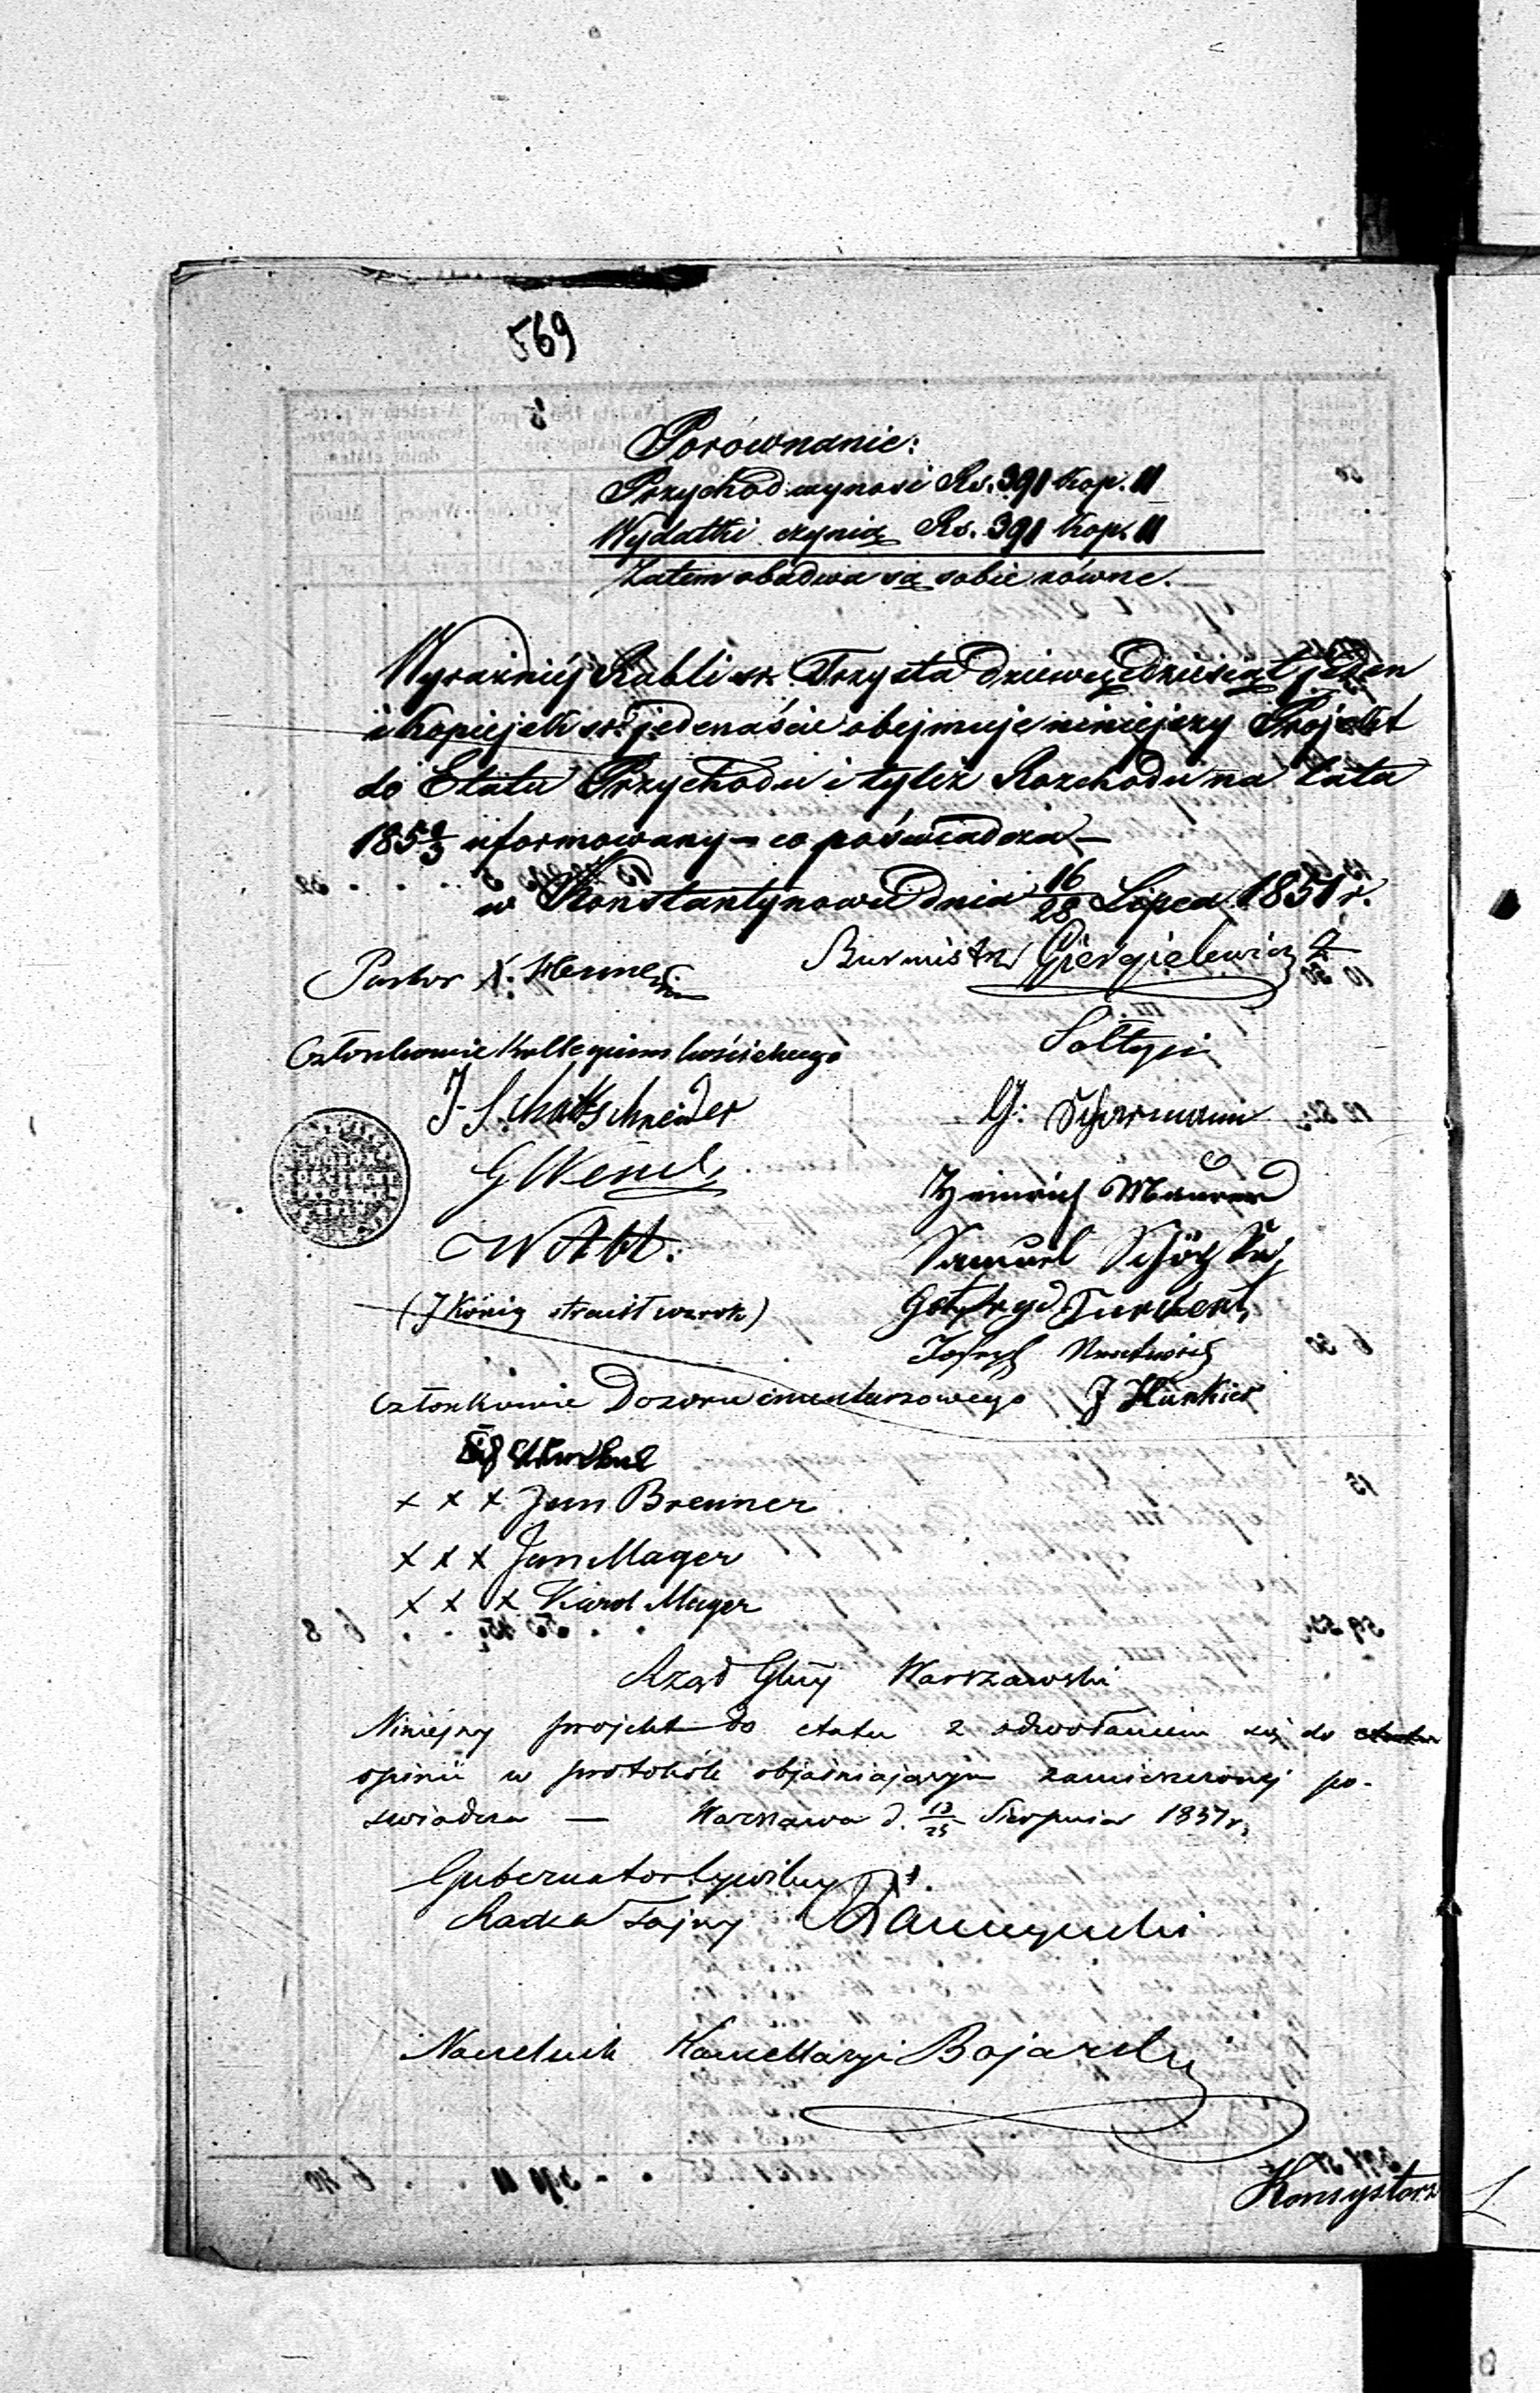 569
Porównanie:
Przychod wynosi Rs. 391 kop. 11
Wydatki czynią Rs. 391 kop. 11
Zatem obadwa są sobie równe.
Wyraźniéj Rubli sr. Trzysta dziewięćdziesiąt jeden
i kopiejek sr. jedenaście obejmuje niniejszy Projekt
do Etatu Przychodu i tyleż Rozchodu na lata
185 2/3 uformowany – co poświadcza –
w Konstantynowie dnia 16/28 Lipca 1851 r.
Pastor Burmistrz Giergielewicz
Członkowie Kollegium kościelnego
Sołtysi
J. Schattschneider
G: Scharmann
G Wende
Heinrich Maurer
W Abt.
Samuel
(J König stracił wzrok)
Gotfryd
Joseph
Członkowie Dozoru cmentarzowego
J Hunkier
x x x Jan Brenner
x x x Jan Mager
x x x Karol Mager
Rząd Gbny Warszawski
Niniejszy projekt do etatu z odwołaniem się do
opinii w protokóle objaśniającym zamieszczonej po-
świadcza — Warszawa d. 13/25 Sierpnia 1851 r.
Gubernator Cywilny
Radca Tajny
Naczelnik Kancellaryi Bojarski
Konsystorz